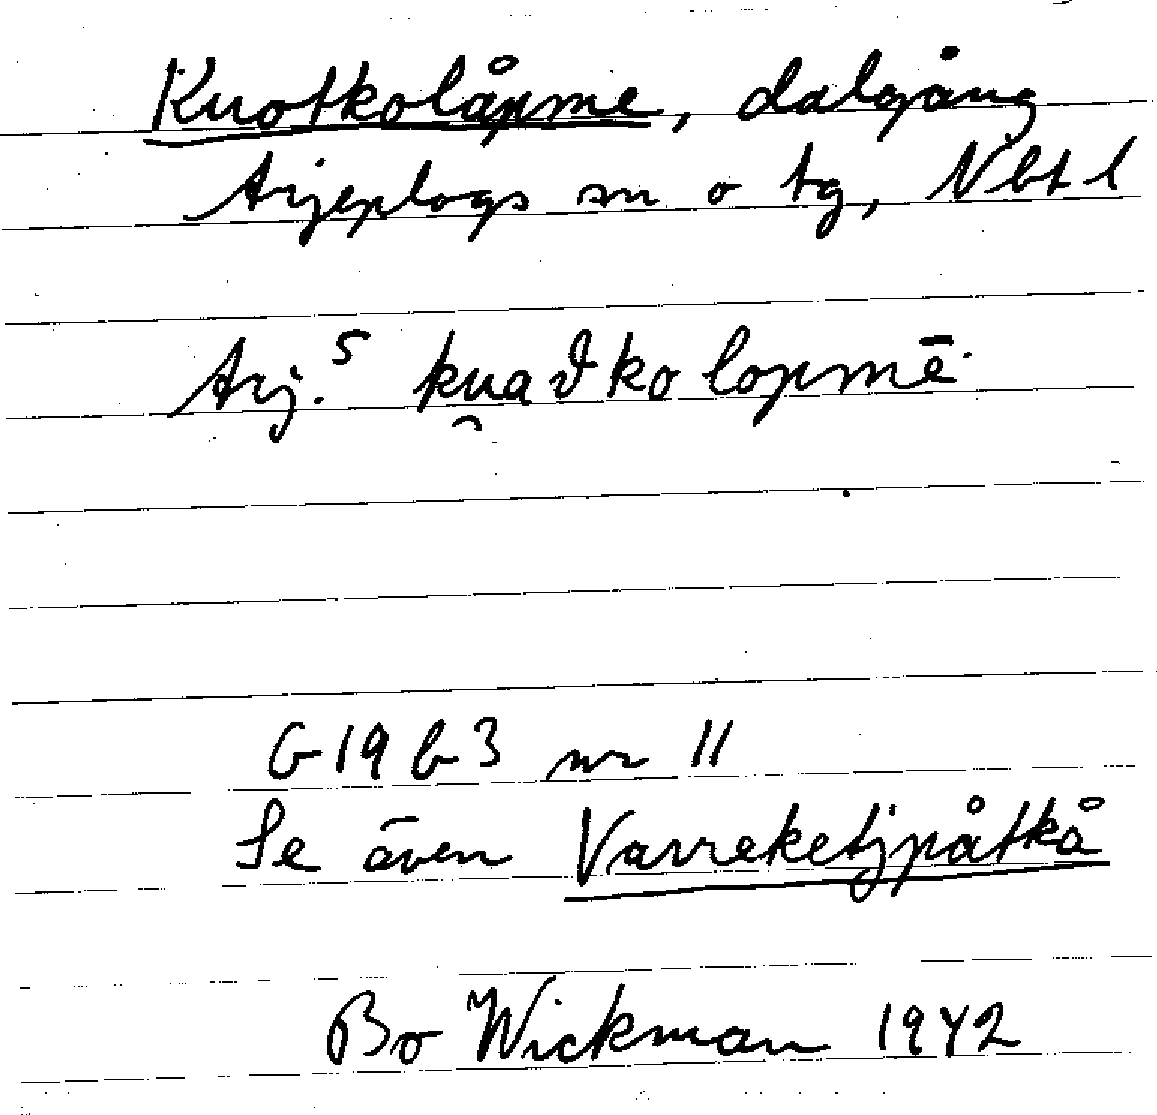 Kuotkolåpme, dalgång
Arjeplogs sn o tg, Nbt l
Arj.ˢ ku̯aϑko lopmē·
G 19 b 3 nr 11
Se även Varreketjpåtkå
Bo Wickman 1942